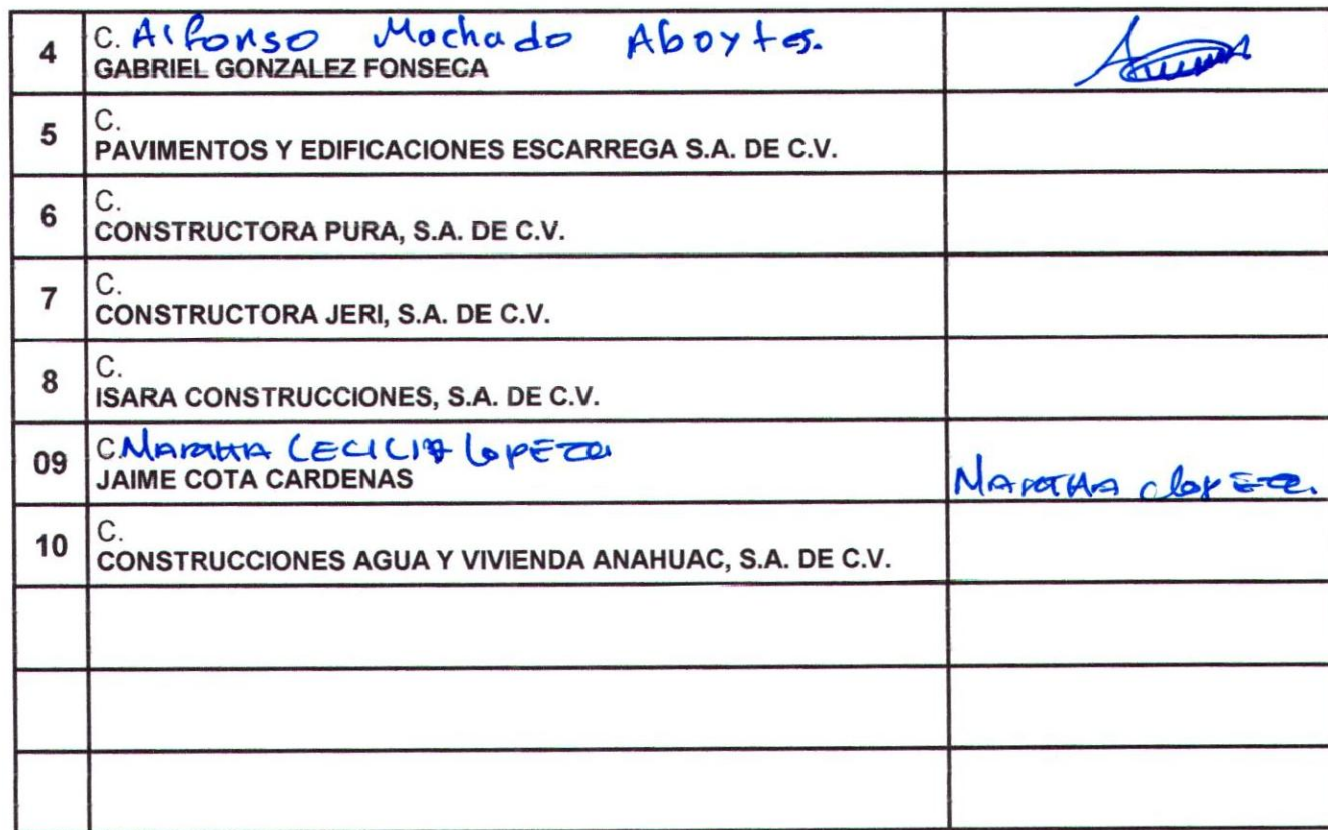 4 C. Alfonso Machado Aboytes.
GABRIEL GONZALEZ FONSECA
5 C.
PAVIMENTOS Y EDIFICACIONES ESCARREGA S.A. DE C.V.
6 C.
CONSTRUCTORA PURA, S.A. DE C.V.
7 C.
CONSTRUCTORA JERI, S.A. DE C.V.
8 C.
ISARA CONSTRUCCIONES, S.A. DE C.V.
09 C. MARTHA CECILIA LOPEZ
JAIME COTA CARDENAS
MARTHA LOPEZ.
10 C.
CONSTRUCCIONES AGUA Y VIVIENDA ANAHUAC, S.A. DE C.V.